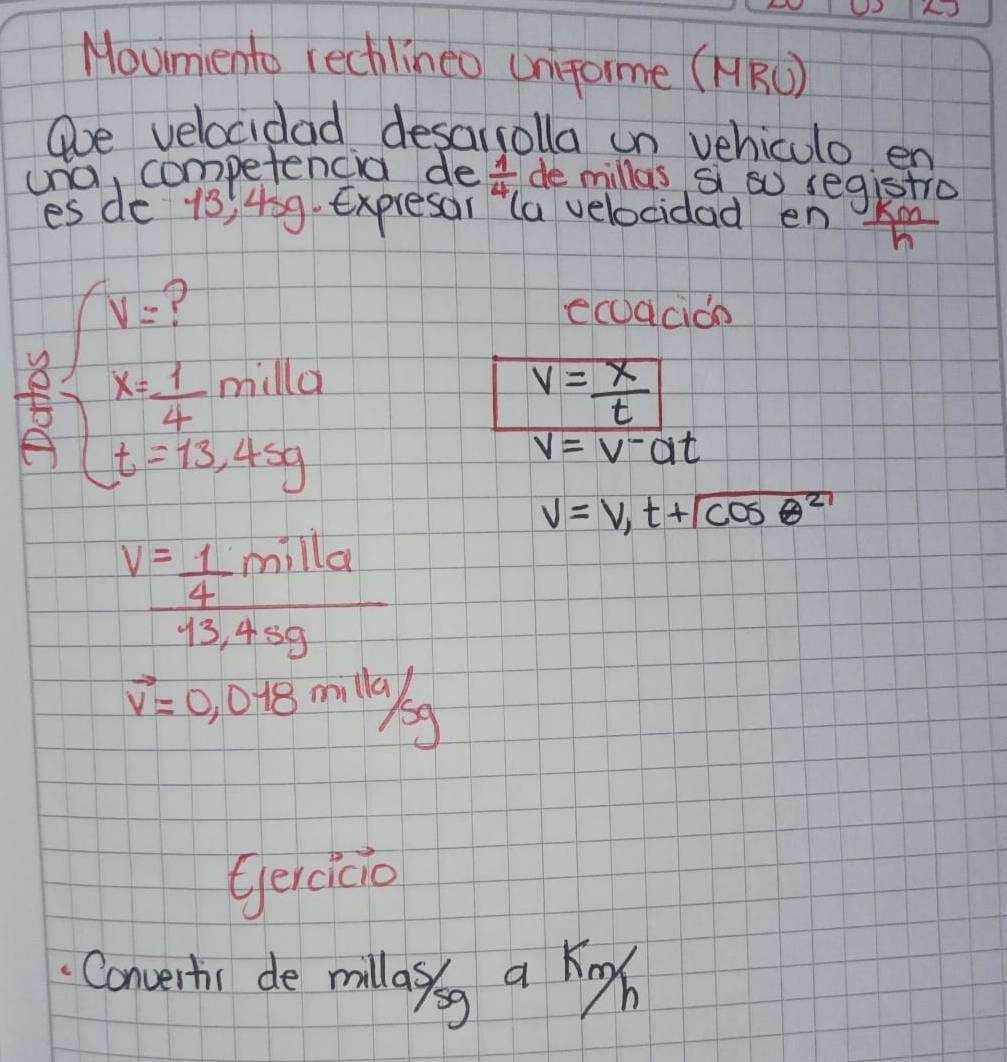 20 03 25
Movimiento rectilineo uniforme (MRU)
Que velocidad desarrolla un vehiculo en
una, competencia de 1/4 de millas, si su registro
es de 13,4sg. Expresar la velocidad en Km/h
Datos
V=?
x=1/4 milla
t=13,4sg
ecuación
V=x/t
V=V-at
V=V,t+√cos θ²
V=1/4 milla
13,4sg
V⃗=0,018 milla/sg
Ejercicio
• Convertir de millas/sg a Km/h